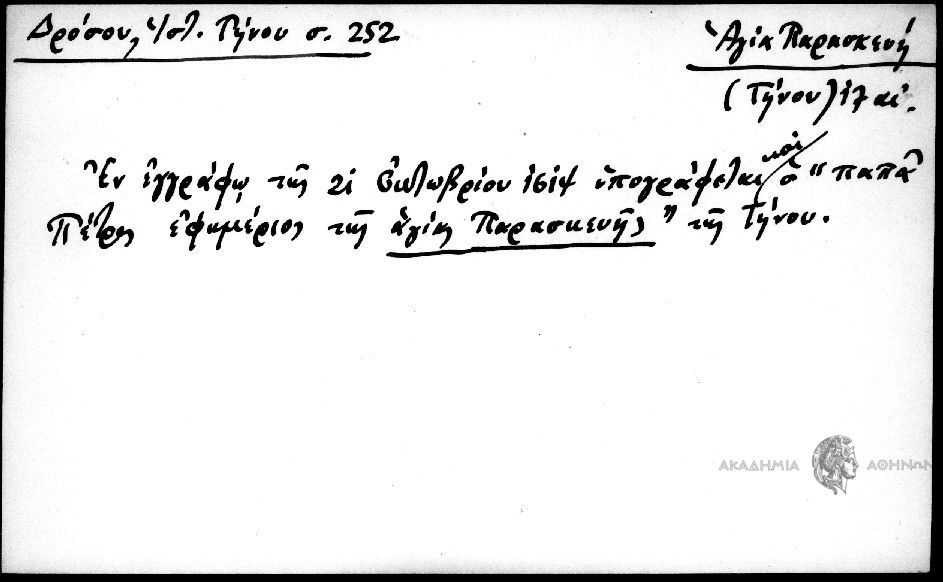 Δρόσου, Ἱστ. Τήνου σ. 252
Ἁγία Παρασκευή
(Τήνου) 17 αἰ.
Ἐν ἐγγράφῳ τῆς 21 Ὀκτωβρίου ὑπογράφεται καὶ ὁ "παπᾶ
Πέτρος ἐφημέριος τῆς ἁγίας Παρασκευῆς" τῆς Τήνου.
ΑΚΑΔΗΜΙΑ ΑΘΗΝΩΝ